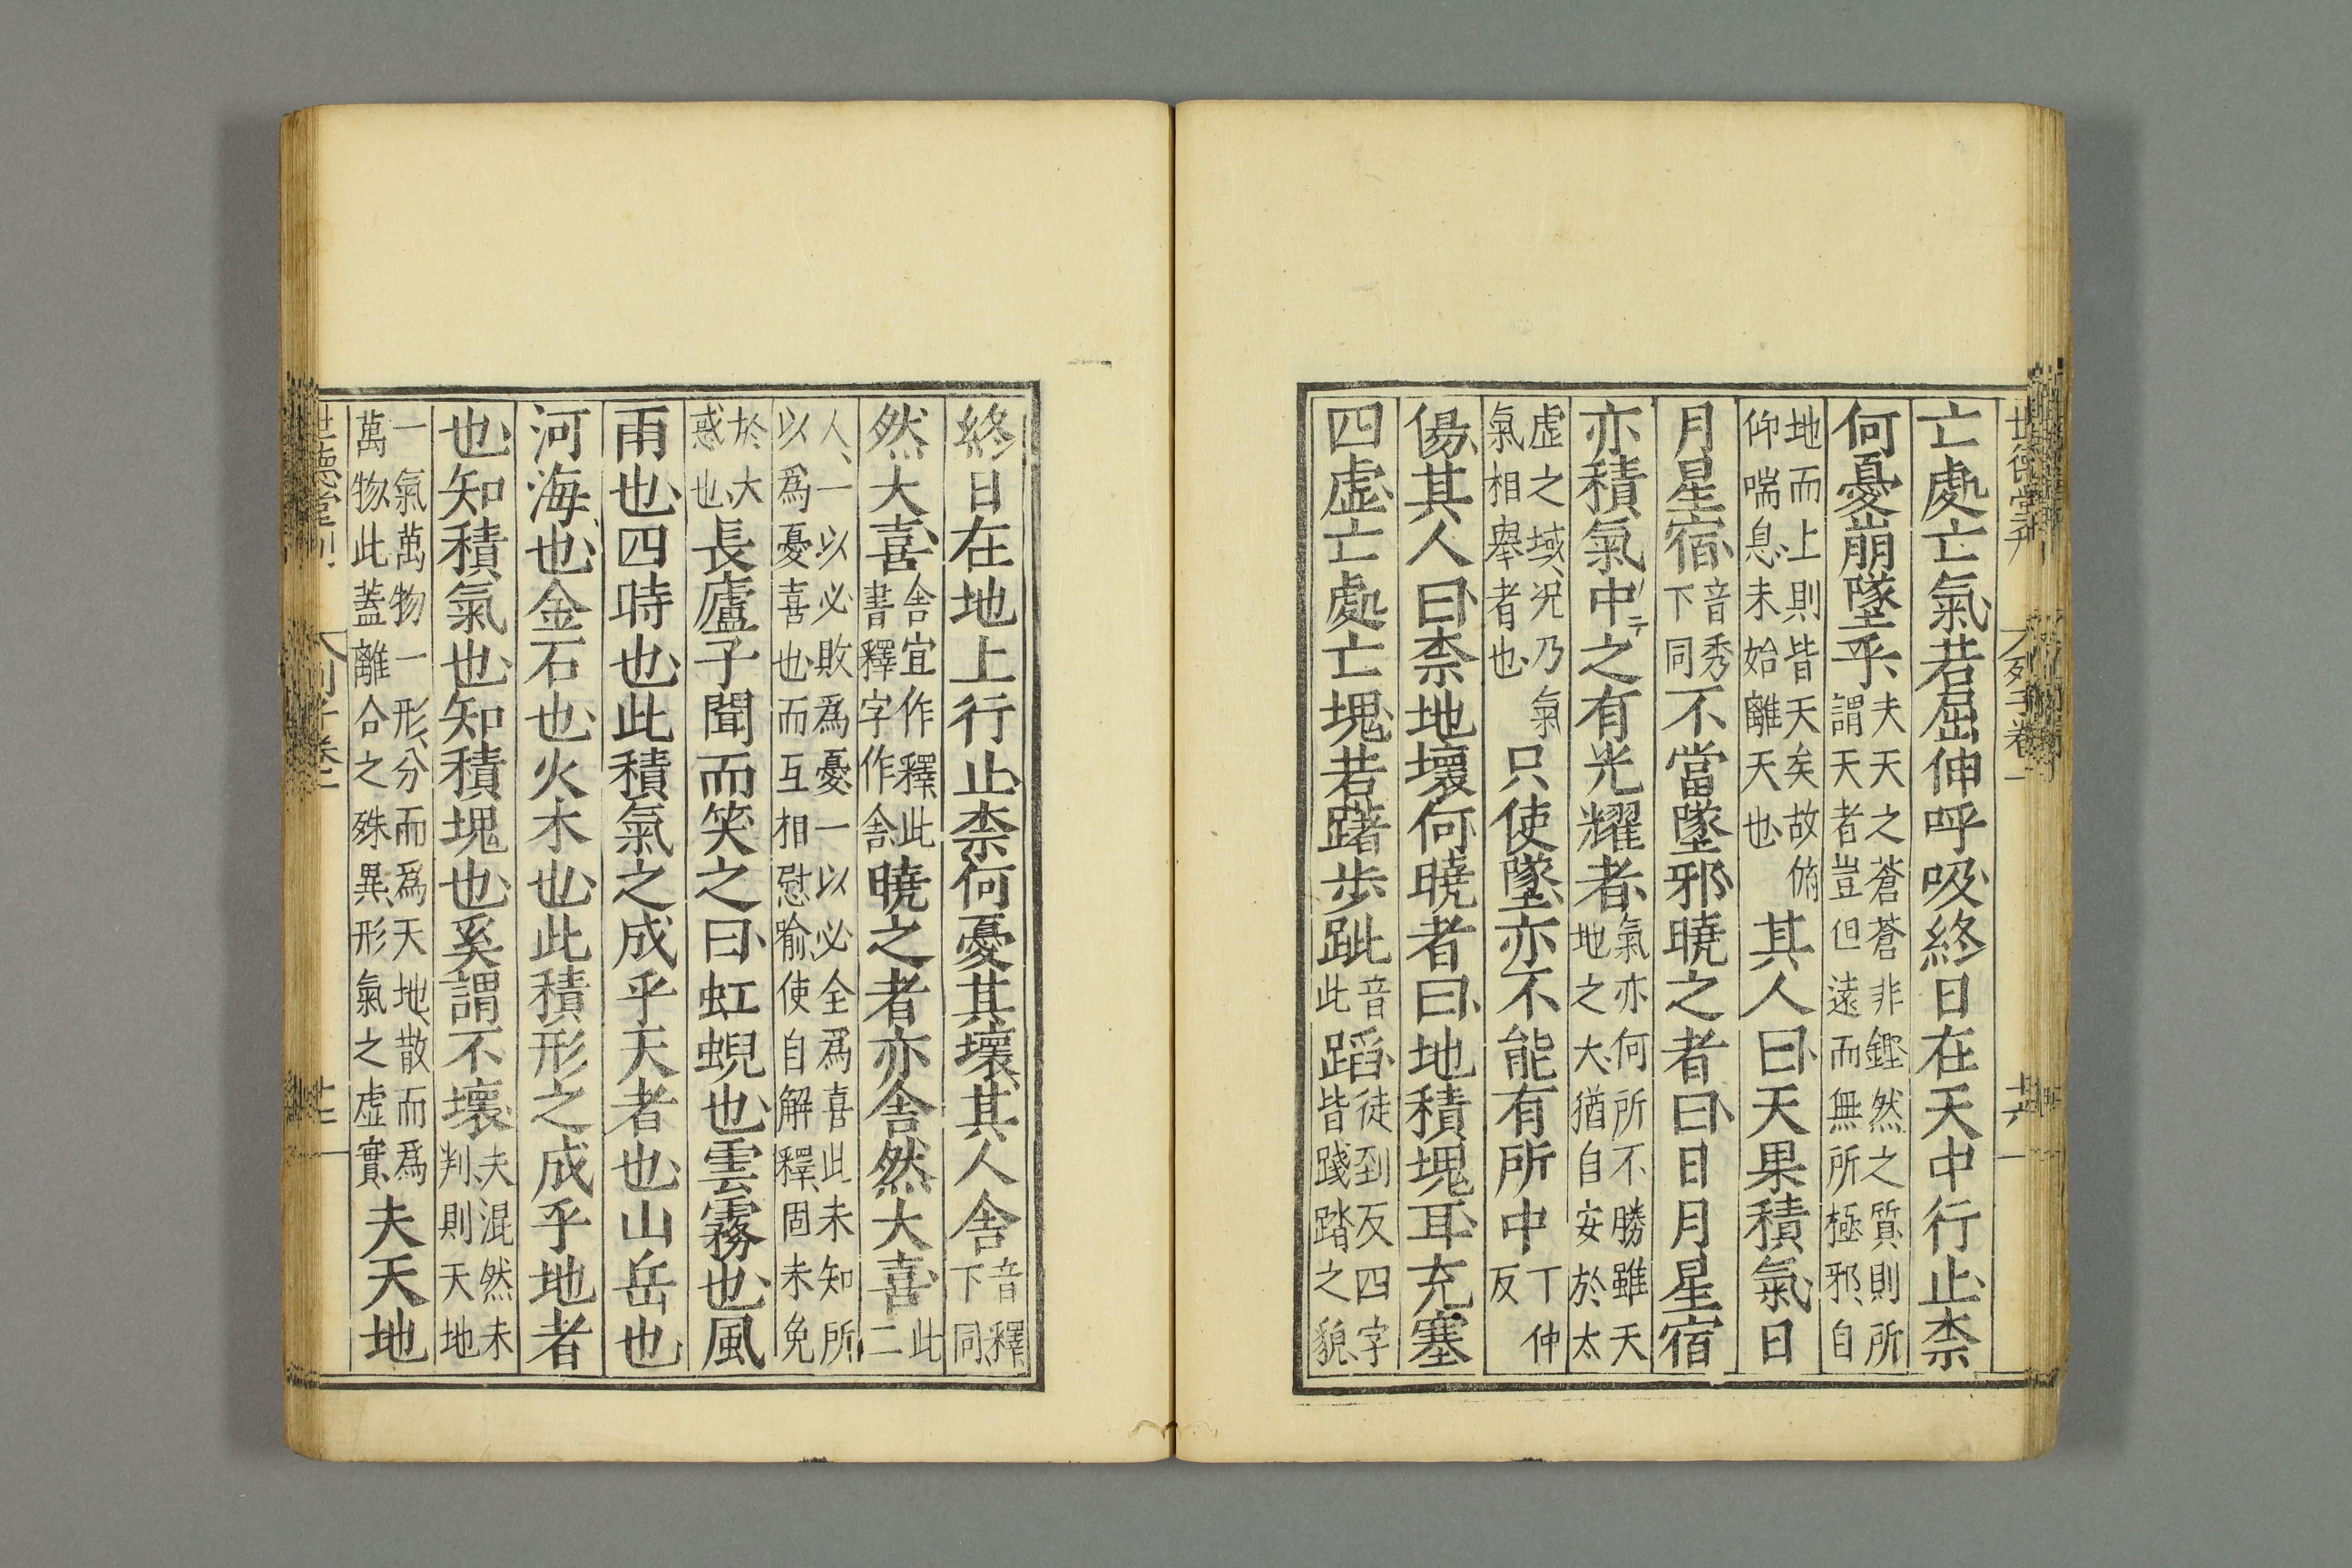 世德堂刊 列子卷一 十六
亡處亡氣若屈伸呼吸終日在天中行止柰
何憂崩墜乎夫天之蒼蒼非鏗然之質則所謂天者豈但遠而無所極邪自
地而上則皆天矣故俯仰喘息未始離天也其人曰天果積氣日
月星宿音秀下同不當墜邪曉之者曰日月星宿
亦積氣中之有光耀者氣亦何所不勝雖天地之大猶自安於太
虛之域況乃氣氣相舉者也只使墜亦不能有所中丁仲反
傷其人曰柰地壞何曉者曰地積塊耳充塞
四虛亡處亡塊若躇步跐音此蹈徒到反四字皆踐踏之貌
終日在地上行止柰何憂其壞其人舍音釋下同
然大喜舍宜作釋此書釋字作舍曉之者亦舍然大喜此二
人一以必敗爲憂一以必全爲喜此未知所以爲憂喜也而互相慰喻使自解釋固未免
於大惑也長廬子聞而笑之曰虹蜺也雲霧也風
雨也四時也此積氣之成乎天者也山岳也
河海也金石也火木也此積形之成乎地者
也知積氣也知積塊也奚謂不壞夫混然未判則天地
一氣萬物一形分而爲天地散而爲萬物此蓋離合之殊異形氣之虛實夫天地
世德堂刊